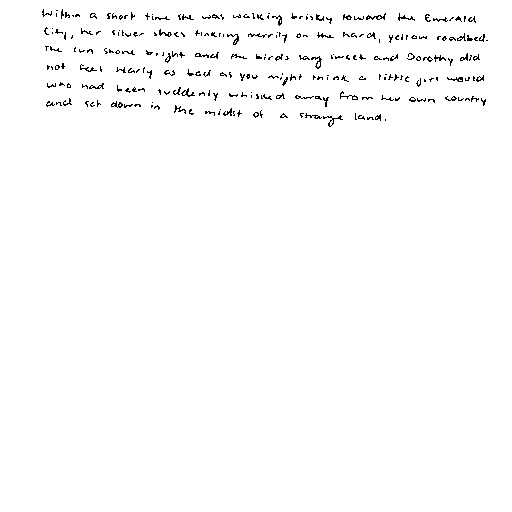 Within a short time she was walking briskly toward the Emerald
City, her silver shoes tinkling merrily on the hard, yellow roadbed.
The sun shone bright and the birds sang sweet and Dorothy did
not feel nearly as bad as you might think a little girl would
who had been suddenly whisked away from her own country
and set down in the midst of a strange land.